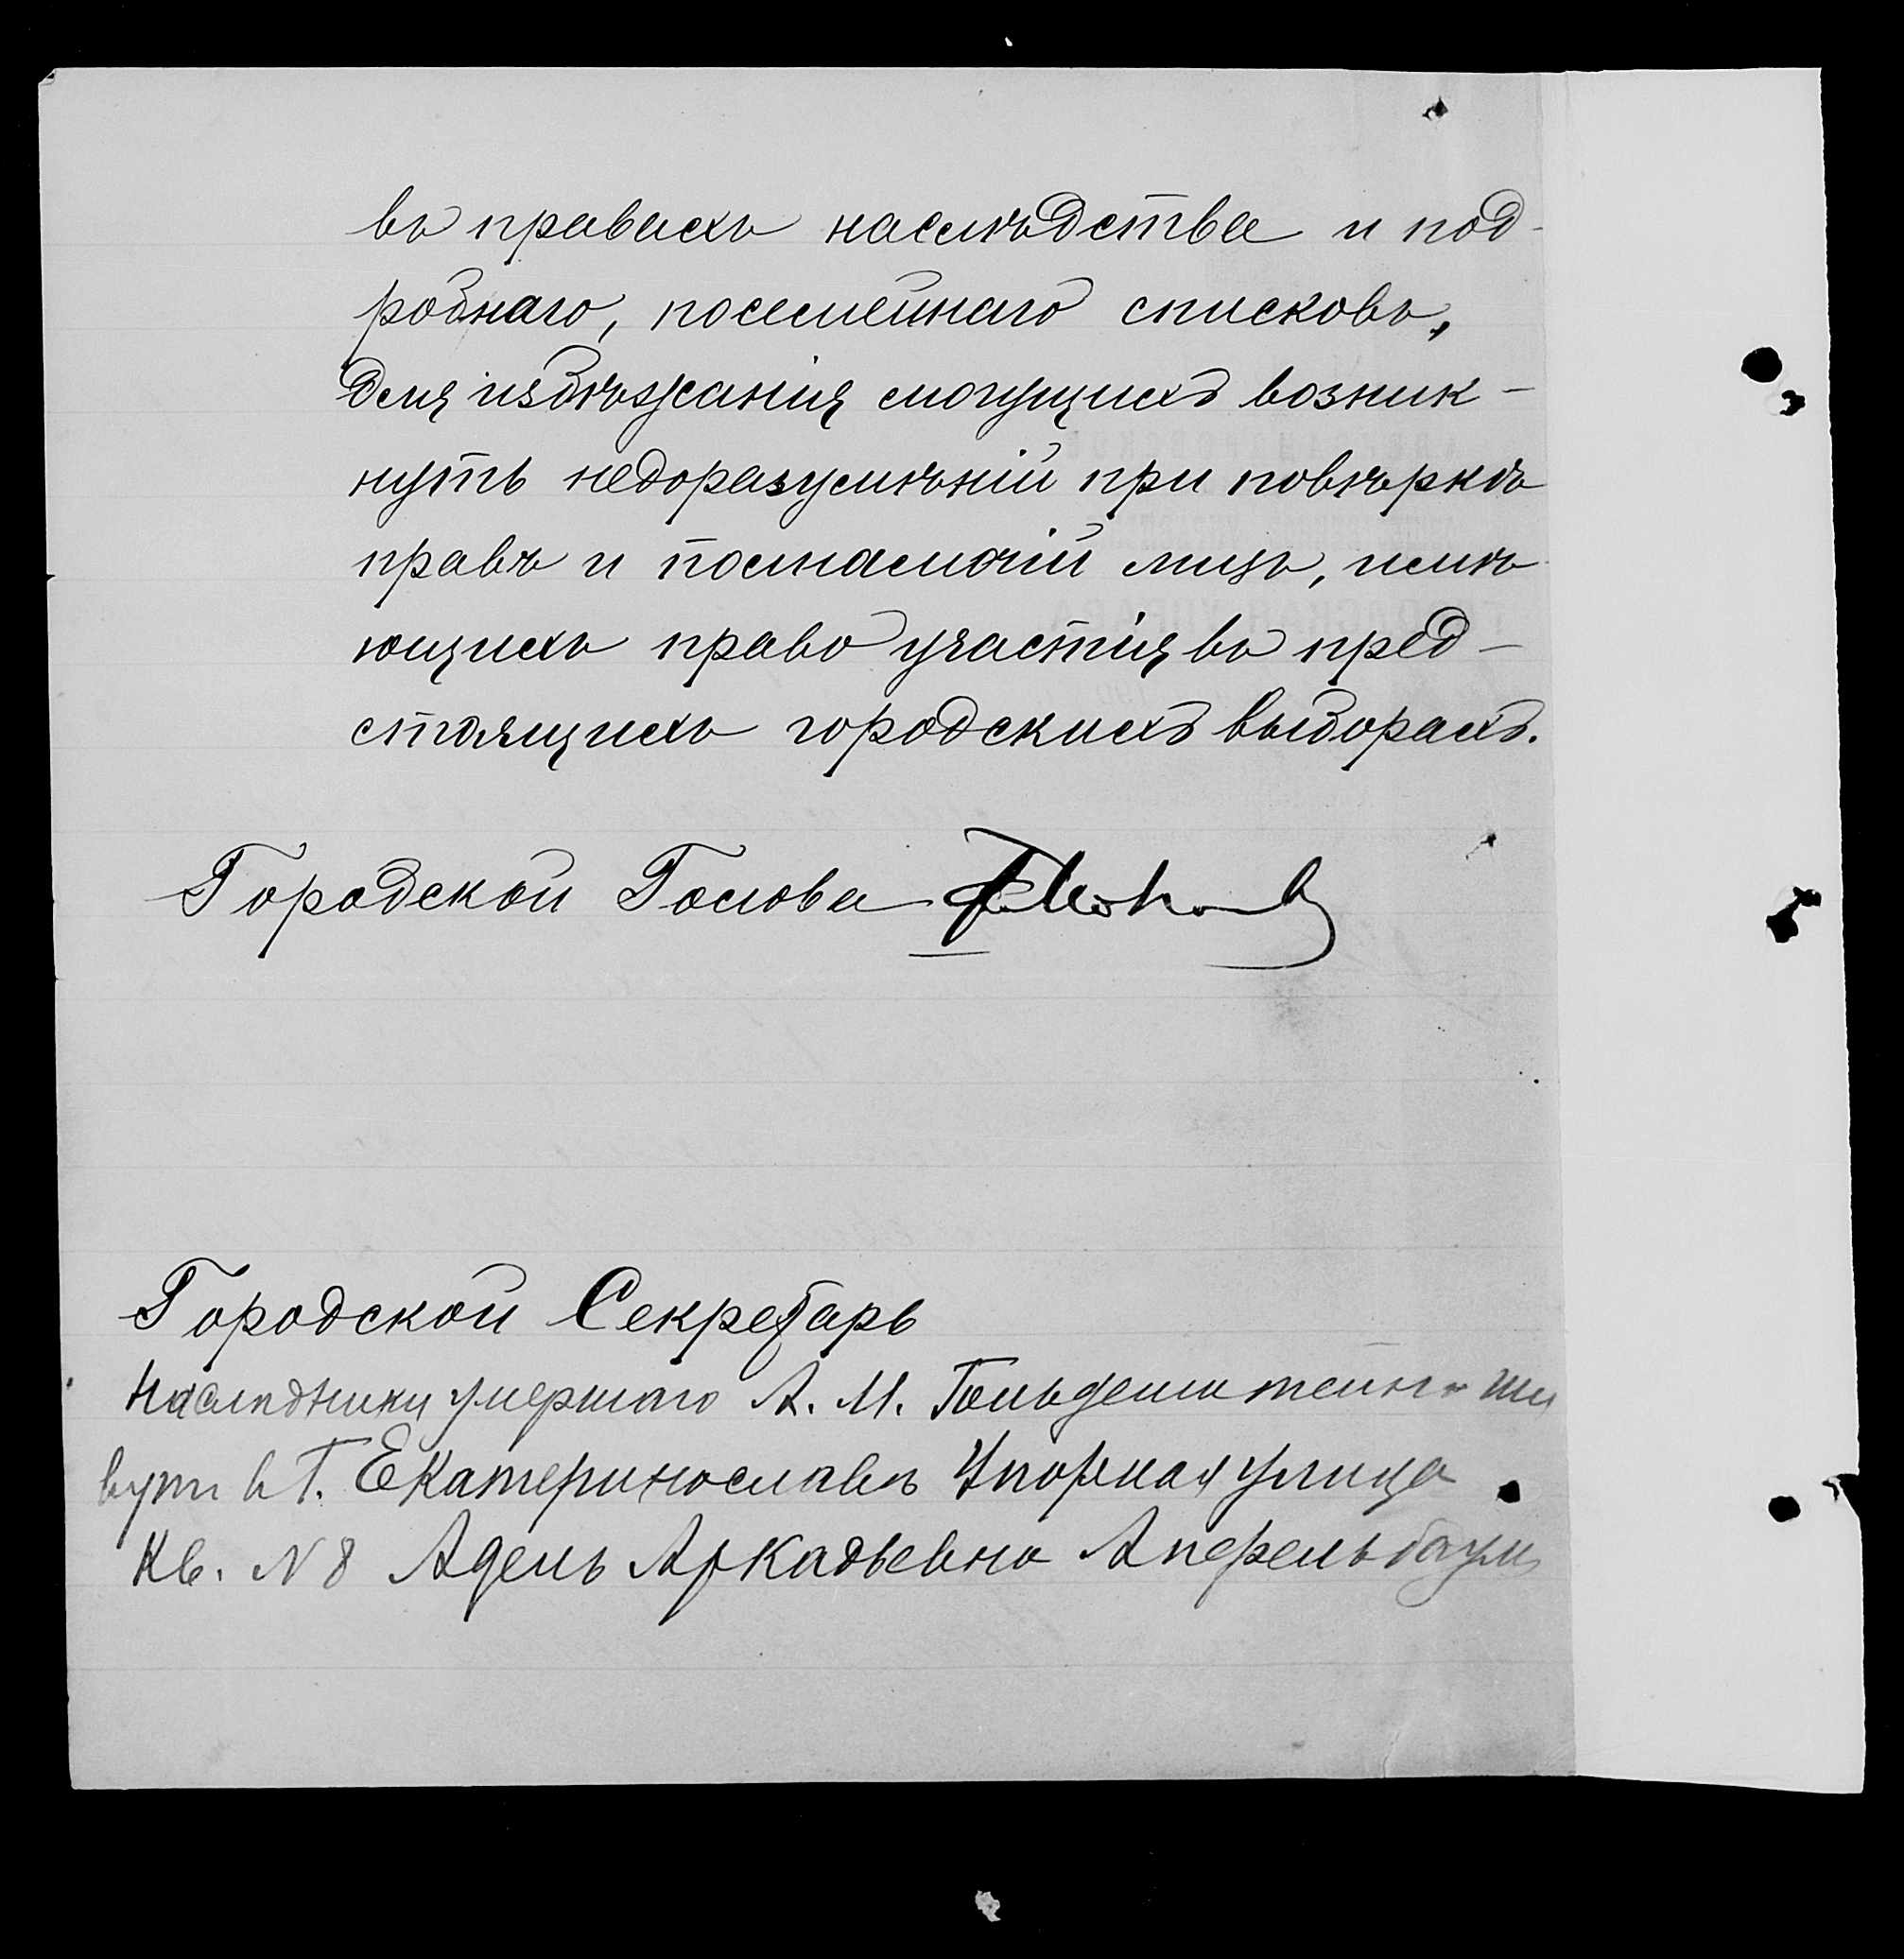 въ правахъ наслѣдства и под-
робнаго, посемейнаго списковъ,
для избѣжанія могущихъ возник-
нуть недоразумѣній при повѣркѣ
правъ и полномочій лицъ, имѣ-
ющихъ право участія въ пред-
стоящихъ городскихъ выборахъ.
Городской Голова
Городской Секретарь
Наследники умершаго А. М. Гольденштейна жи
вутъ в Г. Екатеринославѣ Упорная улица
Кв. N 8 Адель Аркадьевна Аперельбаумъ